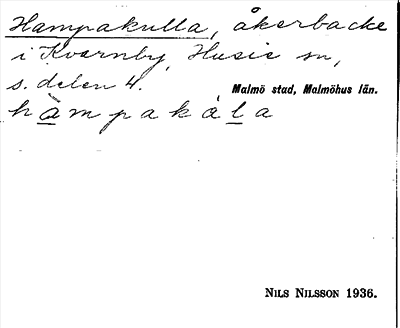 Hampakulla, åkerbacke
i Kvarnby, Husie sn,
s. delen 4.
Malmö stad, Malmöhus län.
hàmpakála
NILS NILSSON 1936.